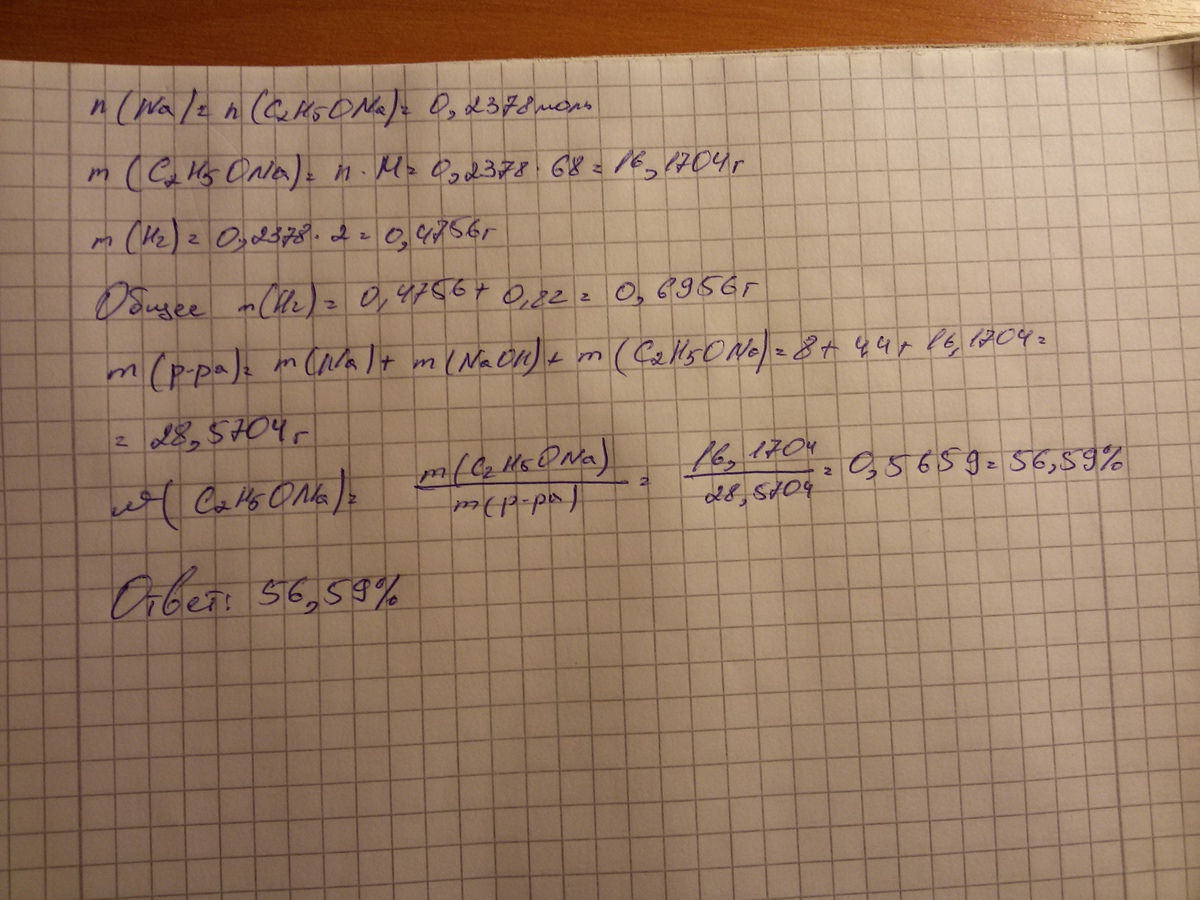 n(Na) = n(C₂H₅ONa) = 0,2378 моль
m(C₂H₅ONa) = n · M = 0,2378 · 68 = 16,1704 г
m(H₂) = 0,2378 · 2 = 0,4756 г
Общее m(H₂) = 0,4756 + 0,22 = 0,6956 г
m(р-ра) = m(Na) + m(NaOH) + m(C₂H₅ONa) = 8 + 4,4 + 16,1704 =
= 28,5704 г
w(C₂H₅ONa) = m(C₂H₅ONa) / m(р-ра) = 16,1704 / 28,5704 = 0,5659 = 56,59%
Ответ: 56,59%